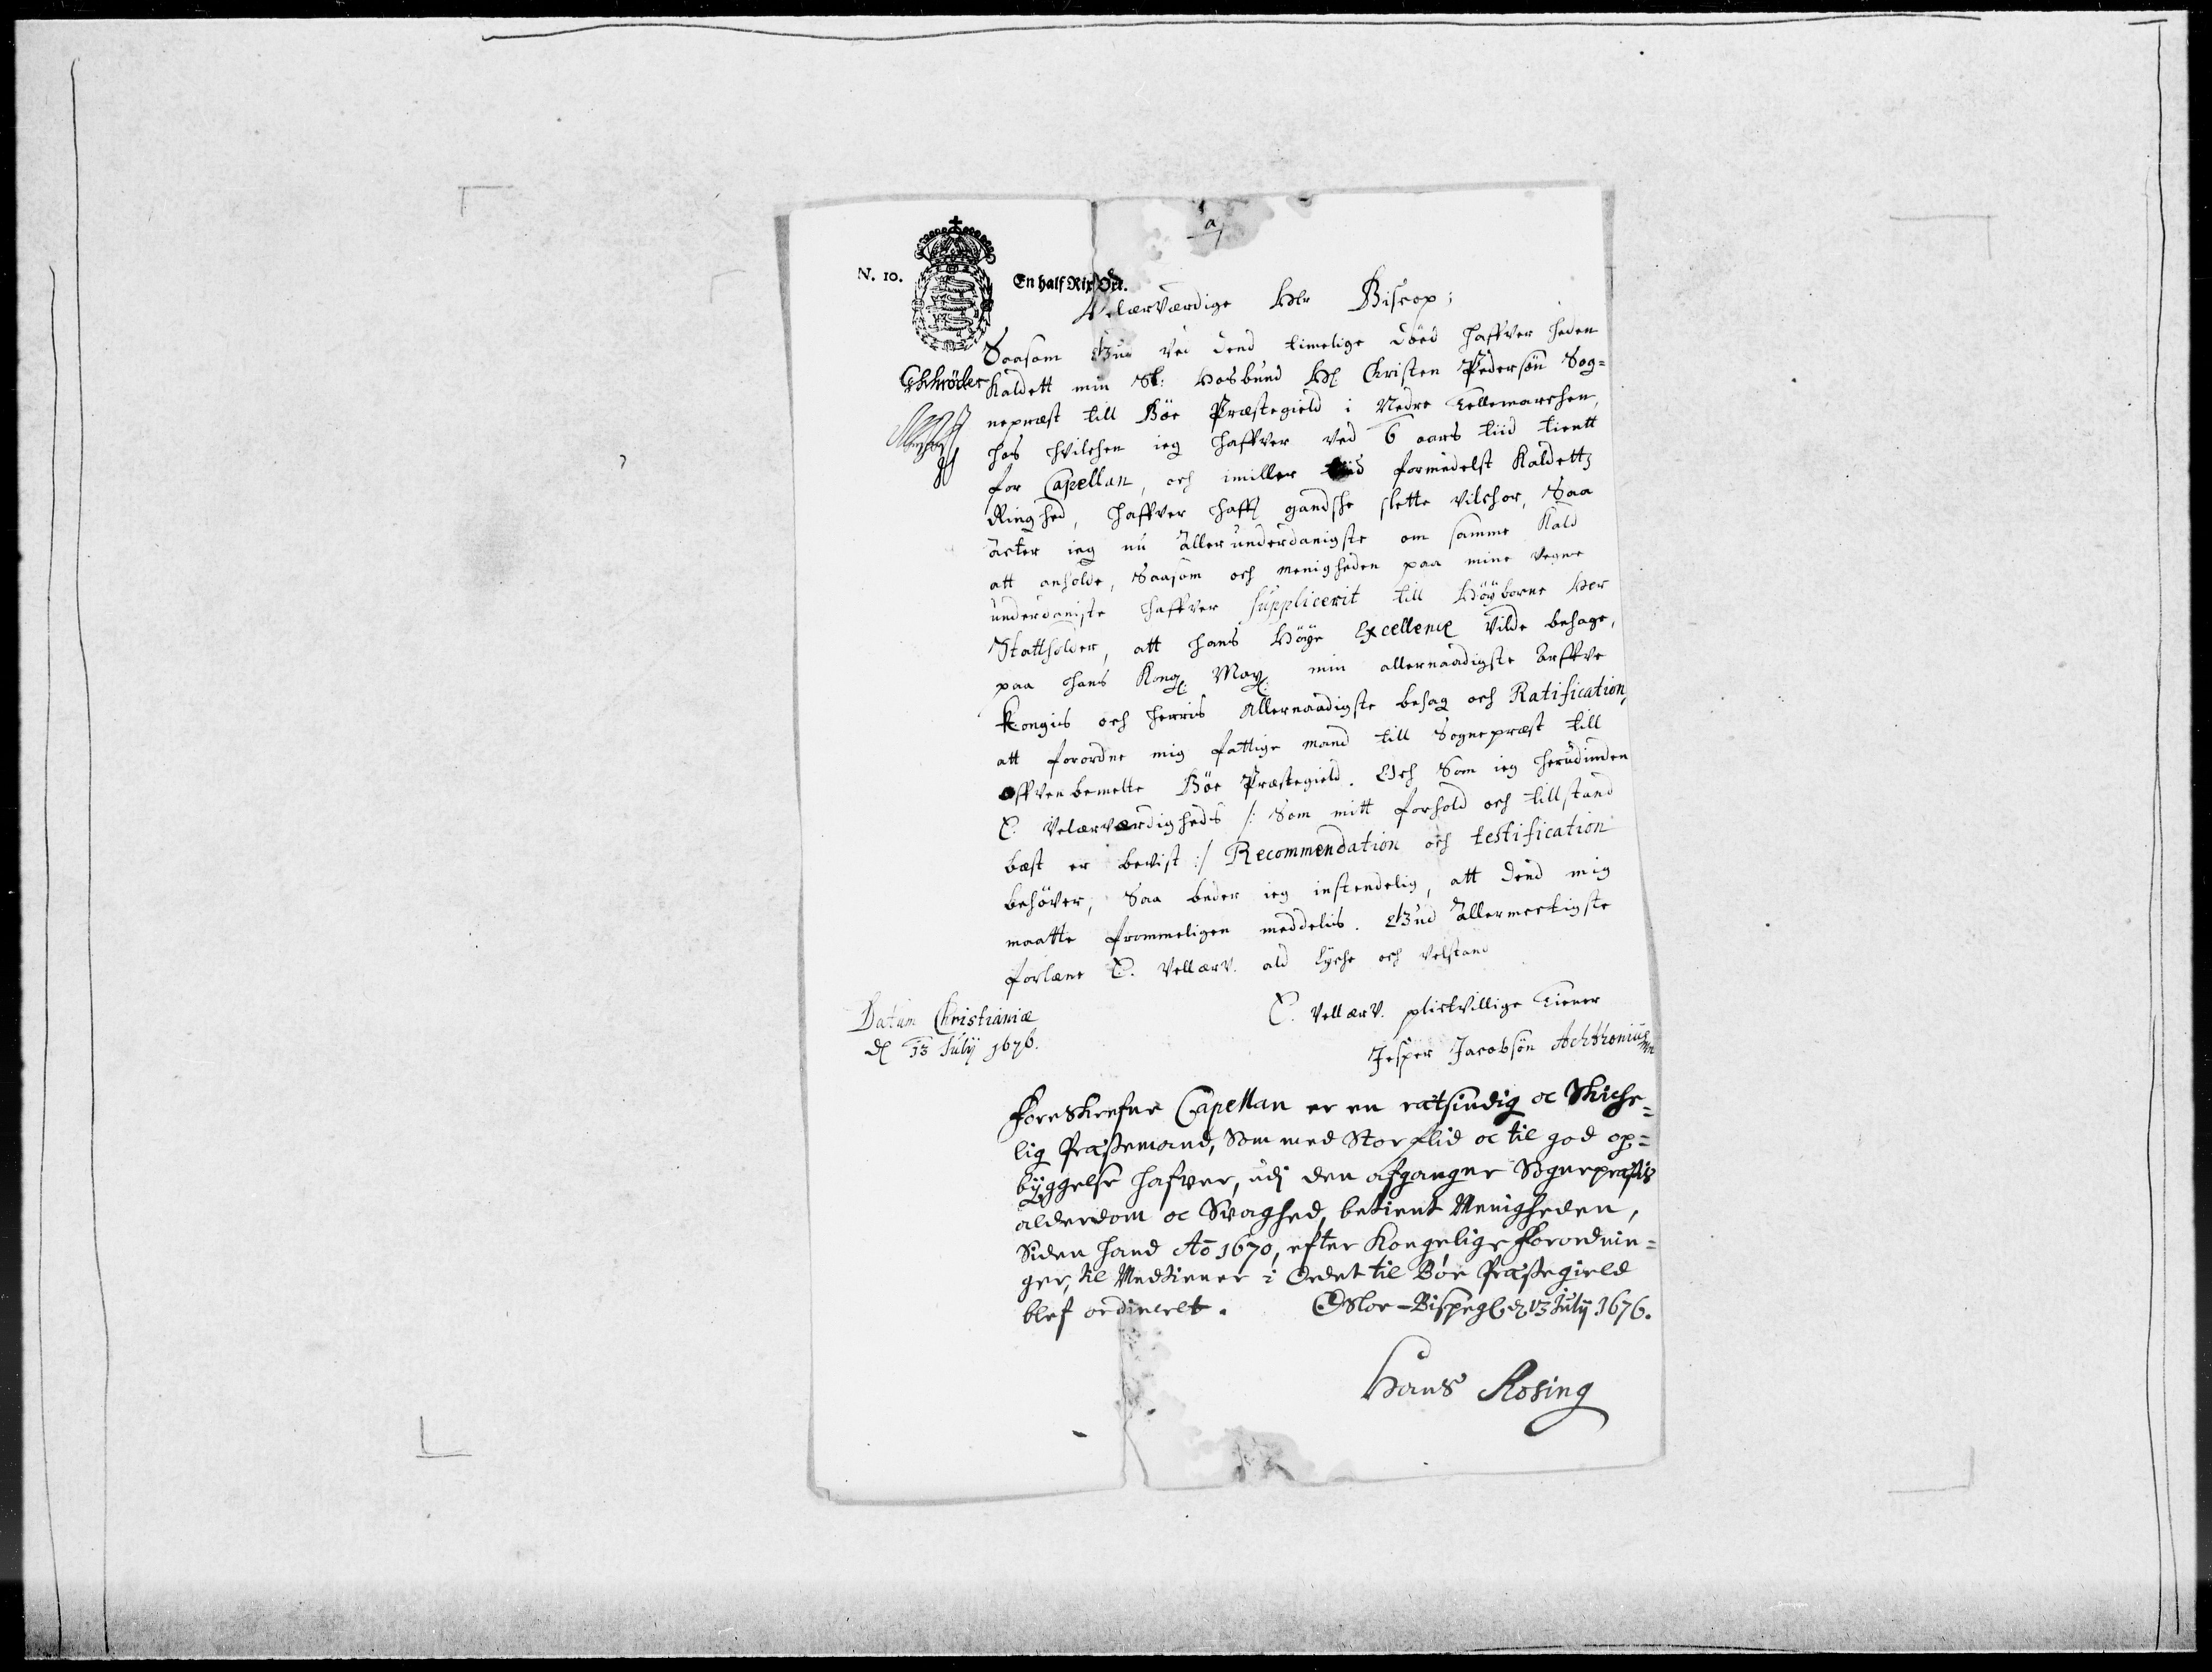 a
N. 10.
En half Rix Ort.
Velærværdige Hr Biscop;
Saasom Gud ved dend timelige død haffver heden
Schröder
kaldett min Sl: Hosbund Hr Christen Pedersøn Sog=
nepræst till Bøe Præstegield i Nedre Tellemarchen,
hos hvilchen ieg haffver ved 6 aars tiid tientt
for Capellan, och imiller tiid formedelst Kaldettz
Ringhed, haffver hafft gandshe slette vilchor, Saa
acter ieg nu allerunderdanigste om samme Kald
att anholde, Saasom och menigheden paa mine vegne
underdaniste haffver suppliceret till Höÿborne Her
Stattholder, att hans Höÿe Excellence vilde behage,
paa hans Kong. May. min allernaadigste Arffve
Kongis och herris Allernaadigste behag och Ratification,
att forordne mig fattige mand till Sognepræst till
offvenbemelte Bøe Præstegield. Och Som ieg herudinden
E. Velærværdigheds /: Som mitt forhold och tillstand
bæst er bevist :/ Recommendation och testification
behøver, Saa beder ieg instendelig, att dend mig
maatte frommeligen meddelis. Gud allermectigste
forlæne E. VellærV. ald lyche och velstand
Datum Christianiæ
d 13 Julij 1676.
E. VellærV. plictvillige Tiener
Jesper Jacobsøn Achthonius
Foreskrefne Capellan er en rætsindig oc Skiche=
lig Præstemand, Som med Stor flid oc til god op=
byggelse hafver, udj den afgangne Sognepræstis
alderdom oc Svaghed, betient Menigheden,
Siden hand Ao 1670, efter Kongelige Forordnin=
ger, til Medtiener i Ordet til Bøe Præstegield
blef ordineret.
Osloe-Bispegl. d 13 Julij 1676.
Hans Rosing